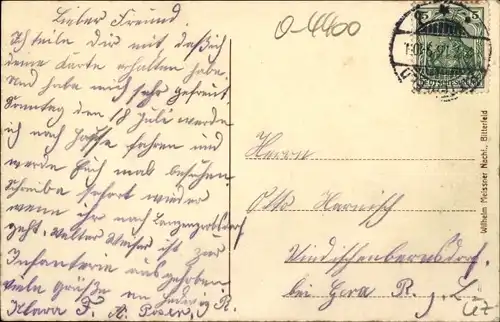 Lieber Freund.
Ich teile dir mit, daß ich
deine Karte erhalten habe.
Und habe mich sehr gefreut.
Sonntag den 18 Juli werde
ich nach fahren und
werde Euch mal besuchen.
Schreibe sofort wieder
wenn ihr nach
geht. Walter ist zur
Infanterie ausgehoben
viele Grüße von Hedwig R.
Klara F. A. Poser,
0-4400
Herrn
Otto Harnisch
Windischenbernsdorf
bei Gera R. j. L.
Wilhelm Meissner Nachf., Bitterfeld